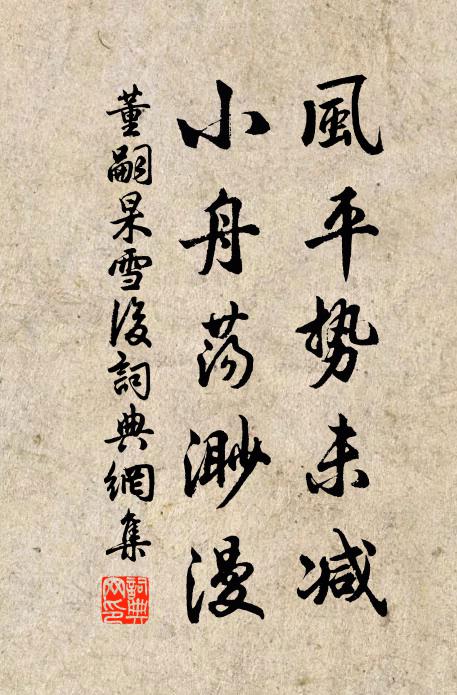 風平势未减
小舟荡渺漫
董嗣杲雪後詞典網集
詞典網印